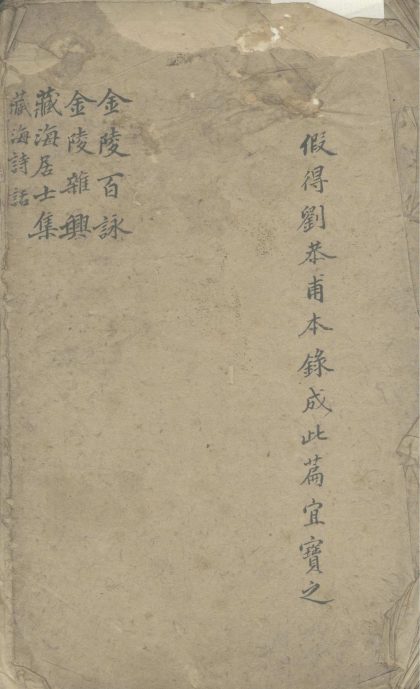 假得劉恭甫本錄成此篇宜寶之
金陵百詠
金陵雜興
藏海居士集
藏海詩話